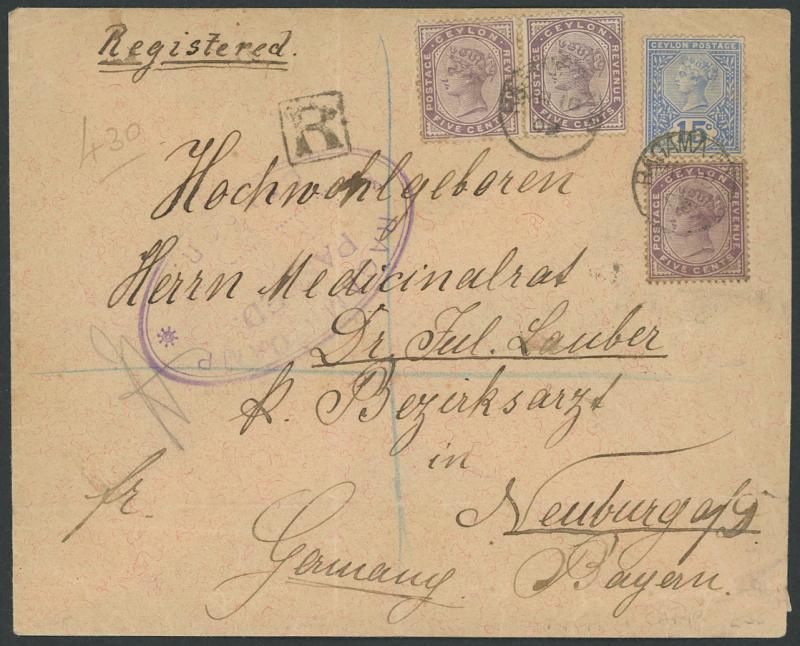 Registered.
CEYLON
POSTAGE
REVENUE
FIVE CENTS
CEYLON
POSTAGE
REVENUE
FIVE CENTS
CEYLON POSTAGE
15 C
430
R
RAGAMA
CEYLON
POSTAGE
REVENUE
FIVE CENTS
Hochwohlgeboren
Herrn Medicinalrat
Dr. Jul. Lauber
k. Bezirksarzt
in
fr.
Neuburg a/D
Germany
Bayern.